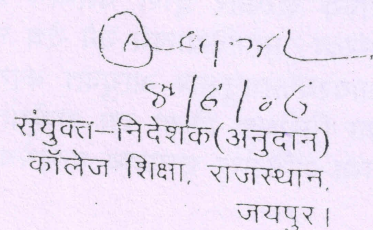 8/6/06
संयुक्त-निदेशक(अनुदान)
कॉलेज शिक्षा, राजस्थान,
जयपुर।